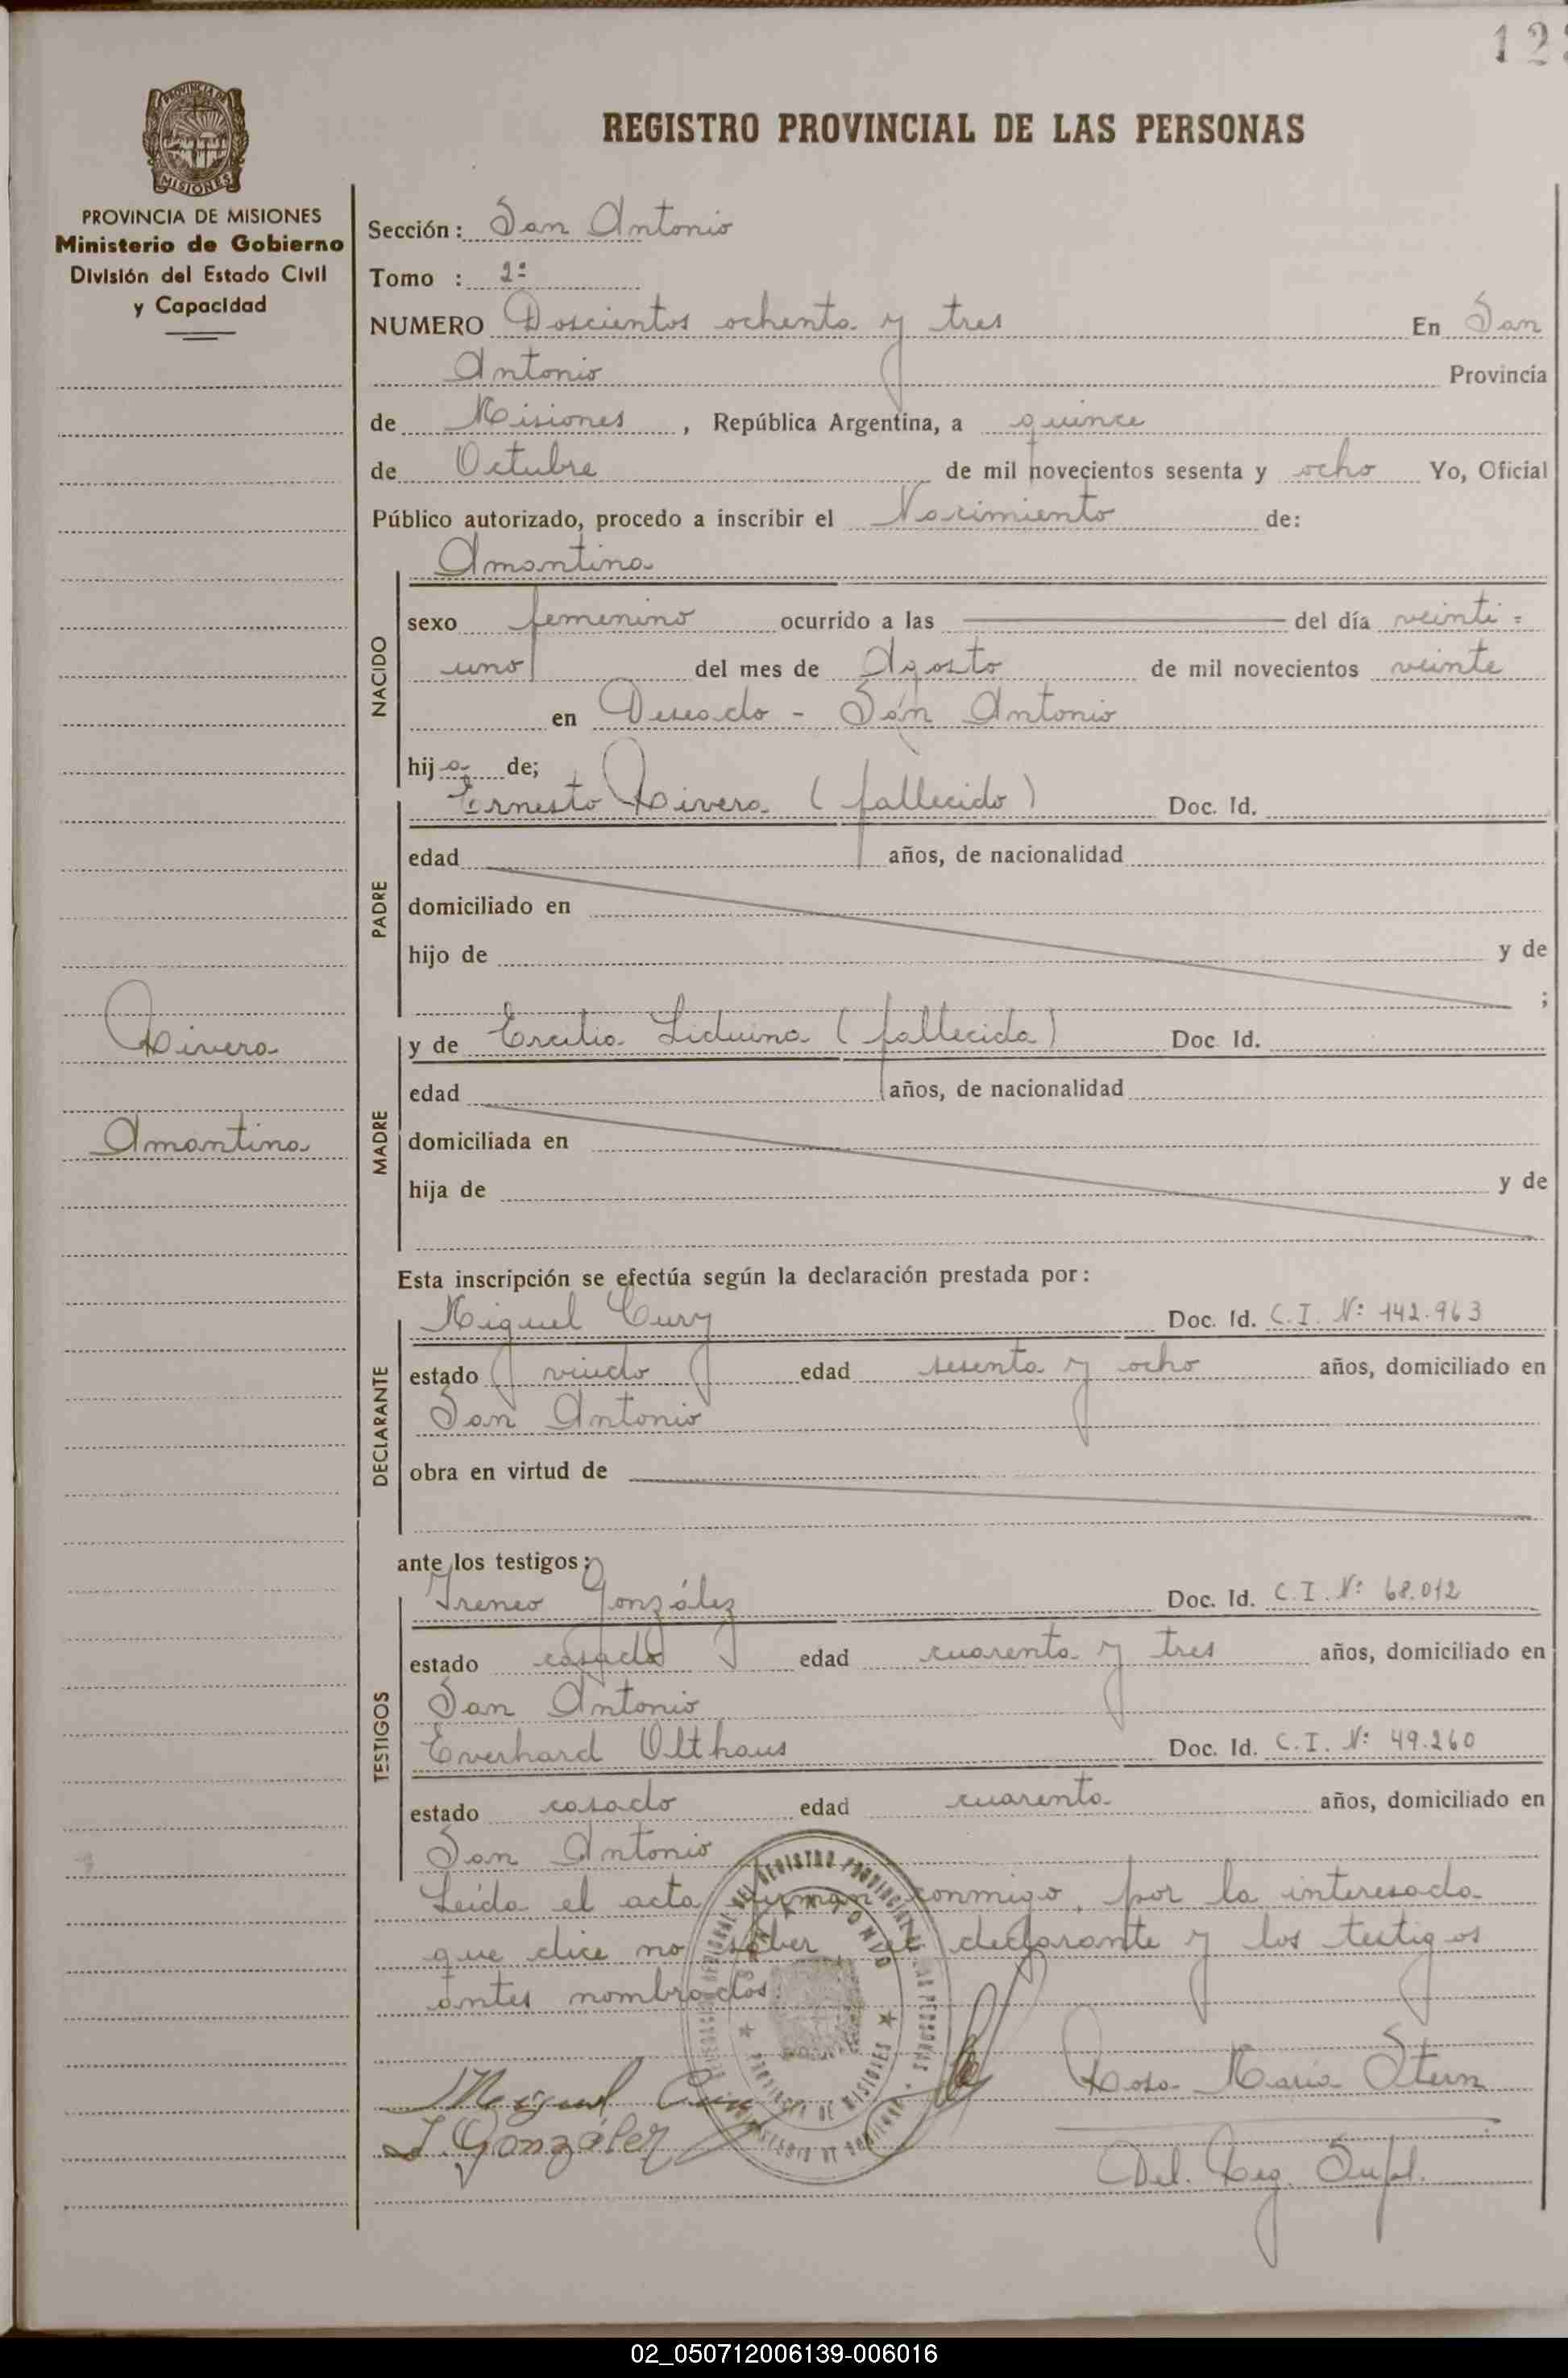 12
REGISTRO PROVINCIAL DE LAS PERSONAS
PROVINCIA DE
MISIONES
PROVINCIA DE MISIONES
Ministerio de Gobierno
División del Estado Civil
y Capacidad
Sección: San Antonio
Tomo : 2º
NUMERO Doscientos ochenta y tres En San
Antonio Provincia
de Misiones, República Argentina, a quince
de Octubre de mil novecientos sesenta y ocho Yo, Oficial
Público autorizado, procedo a inscribir el Nacimiento de:
NACIDO
Amantina
sexo femenino ocurrido a las del día veinti=
uno del mes de Agosto de mil novecientos veinte
en Deseado - San Antonio
hija de;
PADRE
Ernesto Rivera (fallecido) Doc. Id.
edad años, de nacionalidad
domiciliado en
hijo de y de
;
Rivera
Amantina
MADRE
y de Ercilia Liduina (fallecida) Doc. Id.
edad años, de nacionalidad
domiciliada en
hija de y de
Esta inscripción se efectúa según la declaración prestada por:
DECLARANTE
Miguel Cury Doc. Id. C.I. Nº 142.963
estado viudo edad sesenta y ocho años, domiciliado en
San Antonio
obra en virtud de
ante los testigos:
TESTIGOS
Ireneo González Doc. Id. C.I. Nº 68.012
estado casado edad cuarenta y tres años, domiciliado en
San Antonio
Everhard Olthaus Doc. Id. C.I. Nº 49.260
estado casado edad cuarenta años, domiciliado en
San Antonio
Leída el acta firman conmigo, por la interesada
que dice no saber el declarante y los testigos
antes nombrados.
DEL REGISTRO PROVINCIAL DE LAS PERSONAS
SAN ANTONIO
PROVINCIA DE MISIONES
Miguel Cury
I. González
Rosa María Stern
Del. Reg. Supl.
02_050712006139-006016